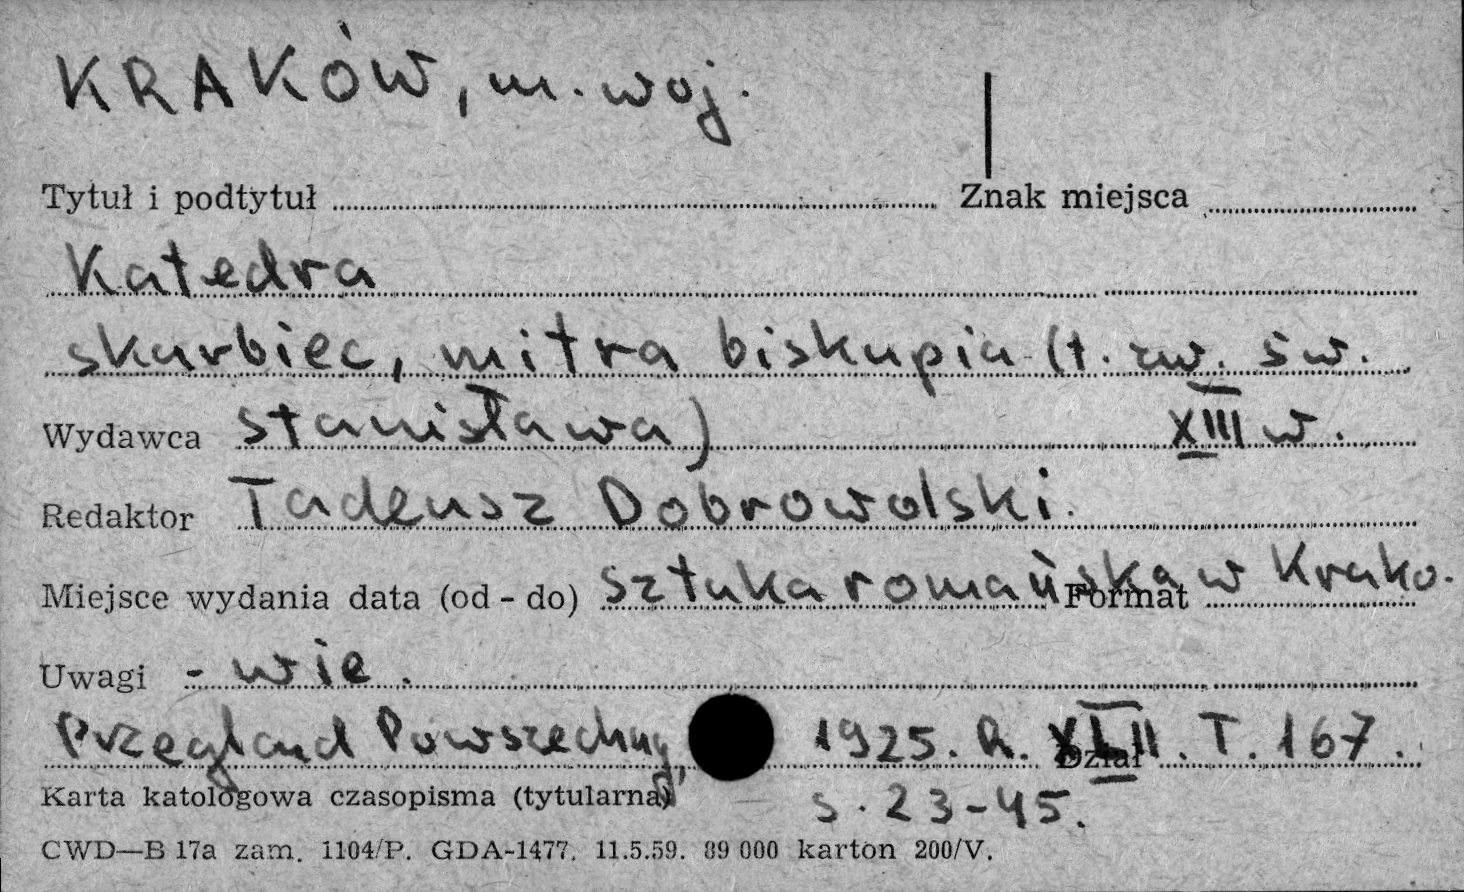 KRAKÓW, m. woj.
Tytuł i podtytuł Znak miejsca
Katedra
skarbiec, mitra biskupia (t. zw. św.
Wydawca Stanisława) XIII w.
Redaktor Tadeusz Dobrowolski.
Miejsce wydania data (od - do) Sztuka romańska w Krako- Format
Uwagi - wie.
Przegląd Powszechny, 1925. R. XLII. T. 167. Dział
Karta katologowa czasopisma (tytularna) s. 23-45.
CWD—B 17a zam. 1104/P. GDA-1477. 11.5.59. 89 000 karton 200/V.